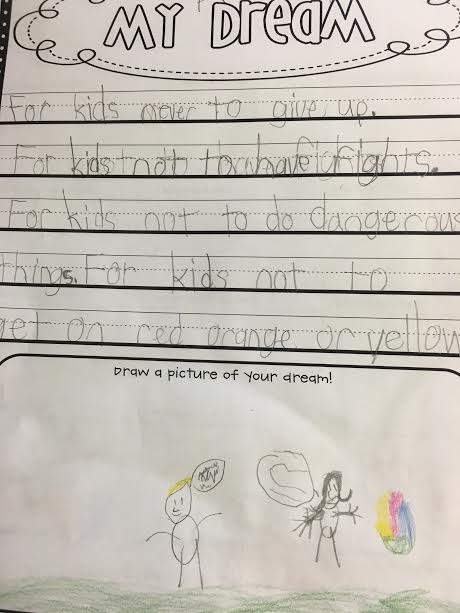 MY DREAM
For kids never to give up.
For kids not to have fights.
For kids not to do dangerous
things. For kids not to
get on red orange or yellow
Draw a picture of your dream!